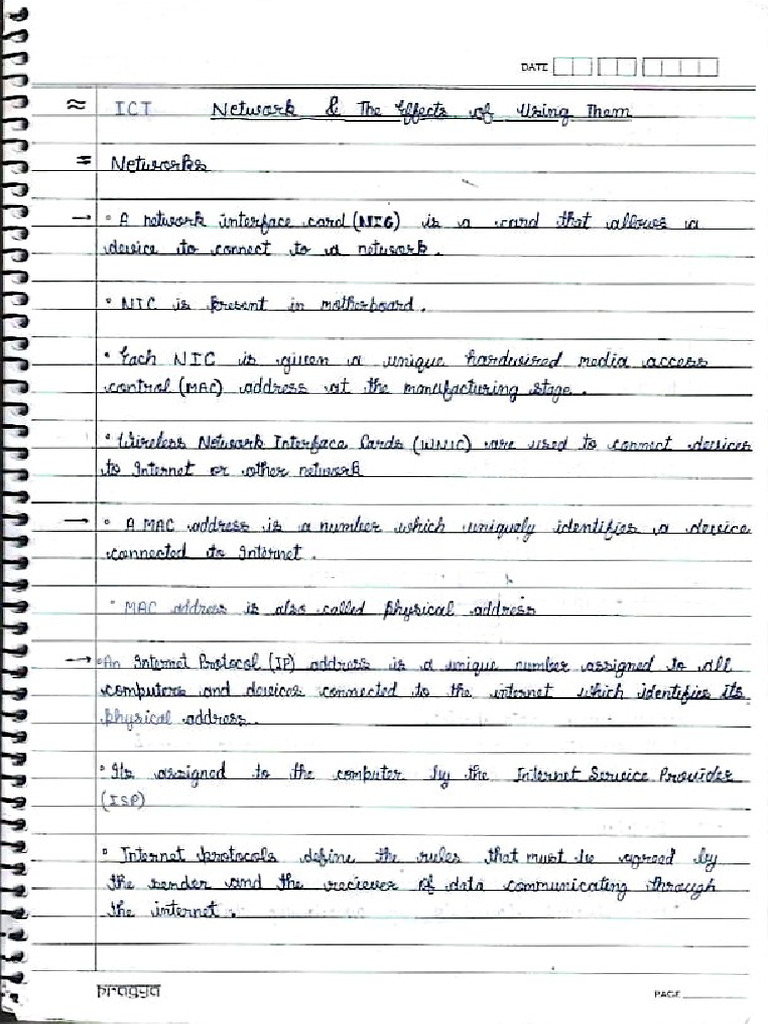 DATE
≈ ICT Network & The Effects of Using Them
= Networks
→ • A network interface card (NIC) is a card that allows a
device to connect to a network.
• NIC is present in motherboard.
• Each NIC is given a unique hardwired media access
control (MAC) address at the manufacturing stage.
• Wireless Network Interface Cards (WNIC) are used to connect devices
to Internet or other network
→ • A MAC address is a number which uniquely identifies a device
connected to Internet.
• MAC address is also called physical address
→ • An Internet Protocol (IP) address is a unique number assigned to all
computers and devices connected to the internet which identifies its
physical address.
• Its assigned to the computer by the Internet Service Provider
(ISP)
• Internet protocols define the rules that must be agreed by
the sender and the reciever of data communicating through
the internet.
pragya
PAGE